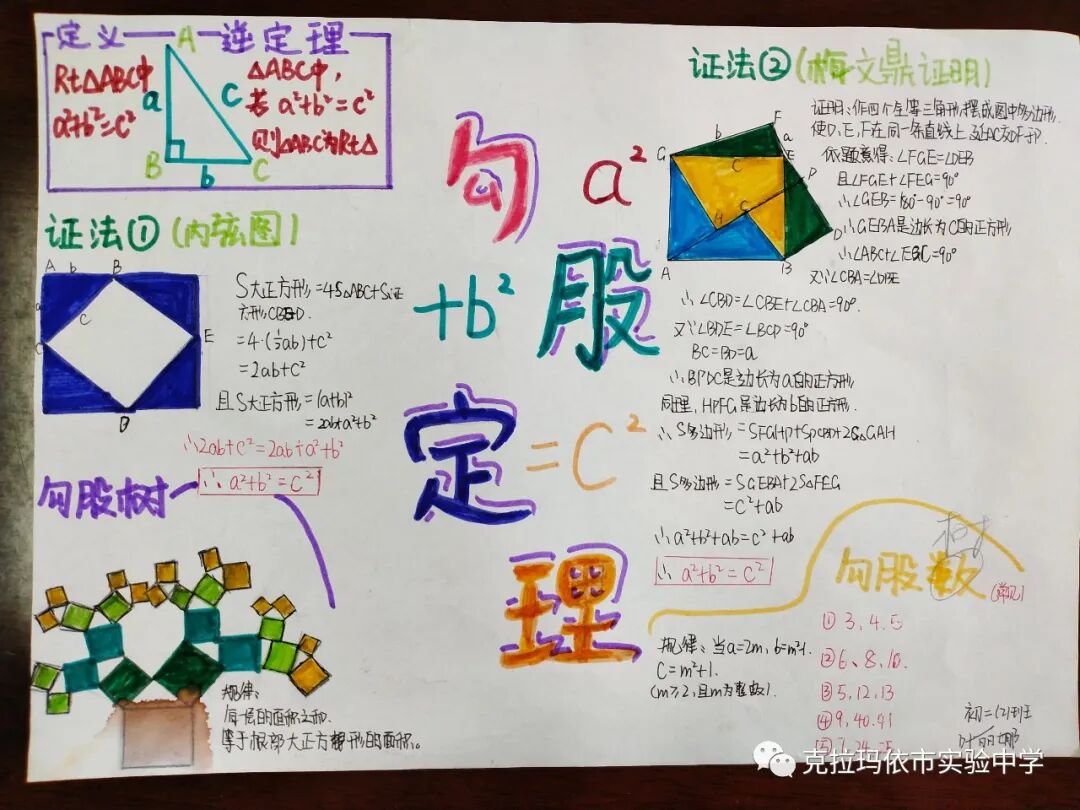 定义
逆定理
A
Rt△ABC中
a²+b²=c²
a
c
B
b
C
△ABC中,
若 a²+b²=c²
则△ABC为Rt△
证法①(内弦图)
A b B
a
C
C
E
D
S大正方形=4S△ABC+S正
方形CBED.
=4·(½ab)+c²
=2ab+c²
且S大正方形=(a+b)²
=2ab+a²+b²
∴2ab+c²=2ab+a²+b²
∴a²+b²=c²
勾股树
规律:
同一层的面积之和.
等于根部大正方形的面积。
勾
股
定
理
a²
+b²
=c²
证法②(梅文鼎证明)
G
b
F
a
E
c
P
H
C
D
A
B
证明:作四个全等三角形,摆成图中多边形.
使D,E,F在同一条直线上,延AC交DF于P.
依题意得:∠FGE=∠DEB
且∠FGE+∠FEG=90°
∴∠GEB=180°-90°=90°
∴GEBA是边长为C的正方形
∴∠ABC+∠EBC=90°
又∵∠CBA=∠DBE
∴∠CBD=∠CBE+∠CBA=90°.
又∵∠BDE=∠BCP=90°
BC=BD=a
∴BPDC是边长为a的正方形
同理,HPFG是边长为b的正方形.
∴S多边形=SFGHP+SPCBD+2S△GAH
=a²+b²+ab
且S多边形=SGEBA+2S△FEG
=c²+ab
∴a²+b²+ab=c²+ab
∴a²+b²=c²
勾股数
(常见)
①3,4,5
②6、8、10.
③5,12,13
④9,40,41
⑤7,24,25
规律:当a=2m,b=m²-1.
C=m²+1.
(m≥2,且m为整数).
初二(2)班
克拉玛依市实验中学